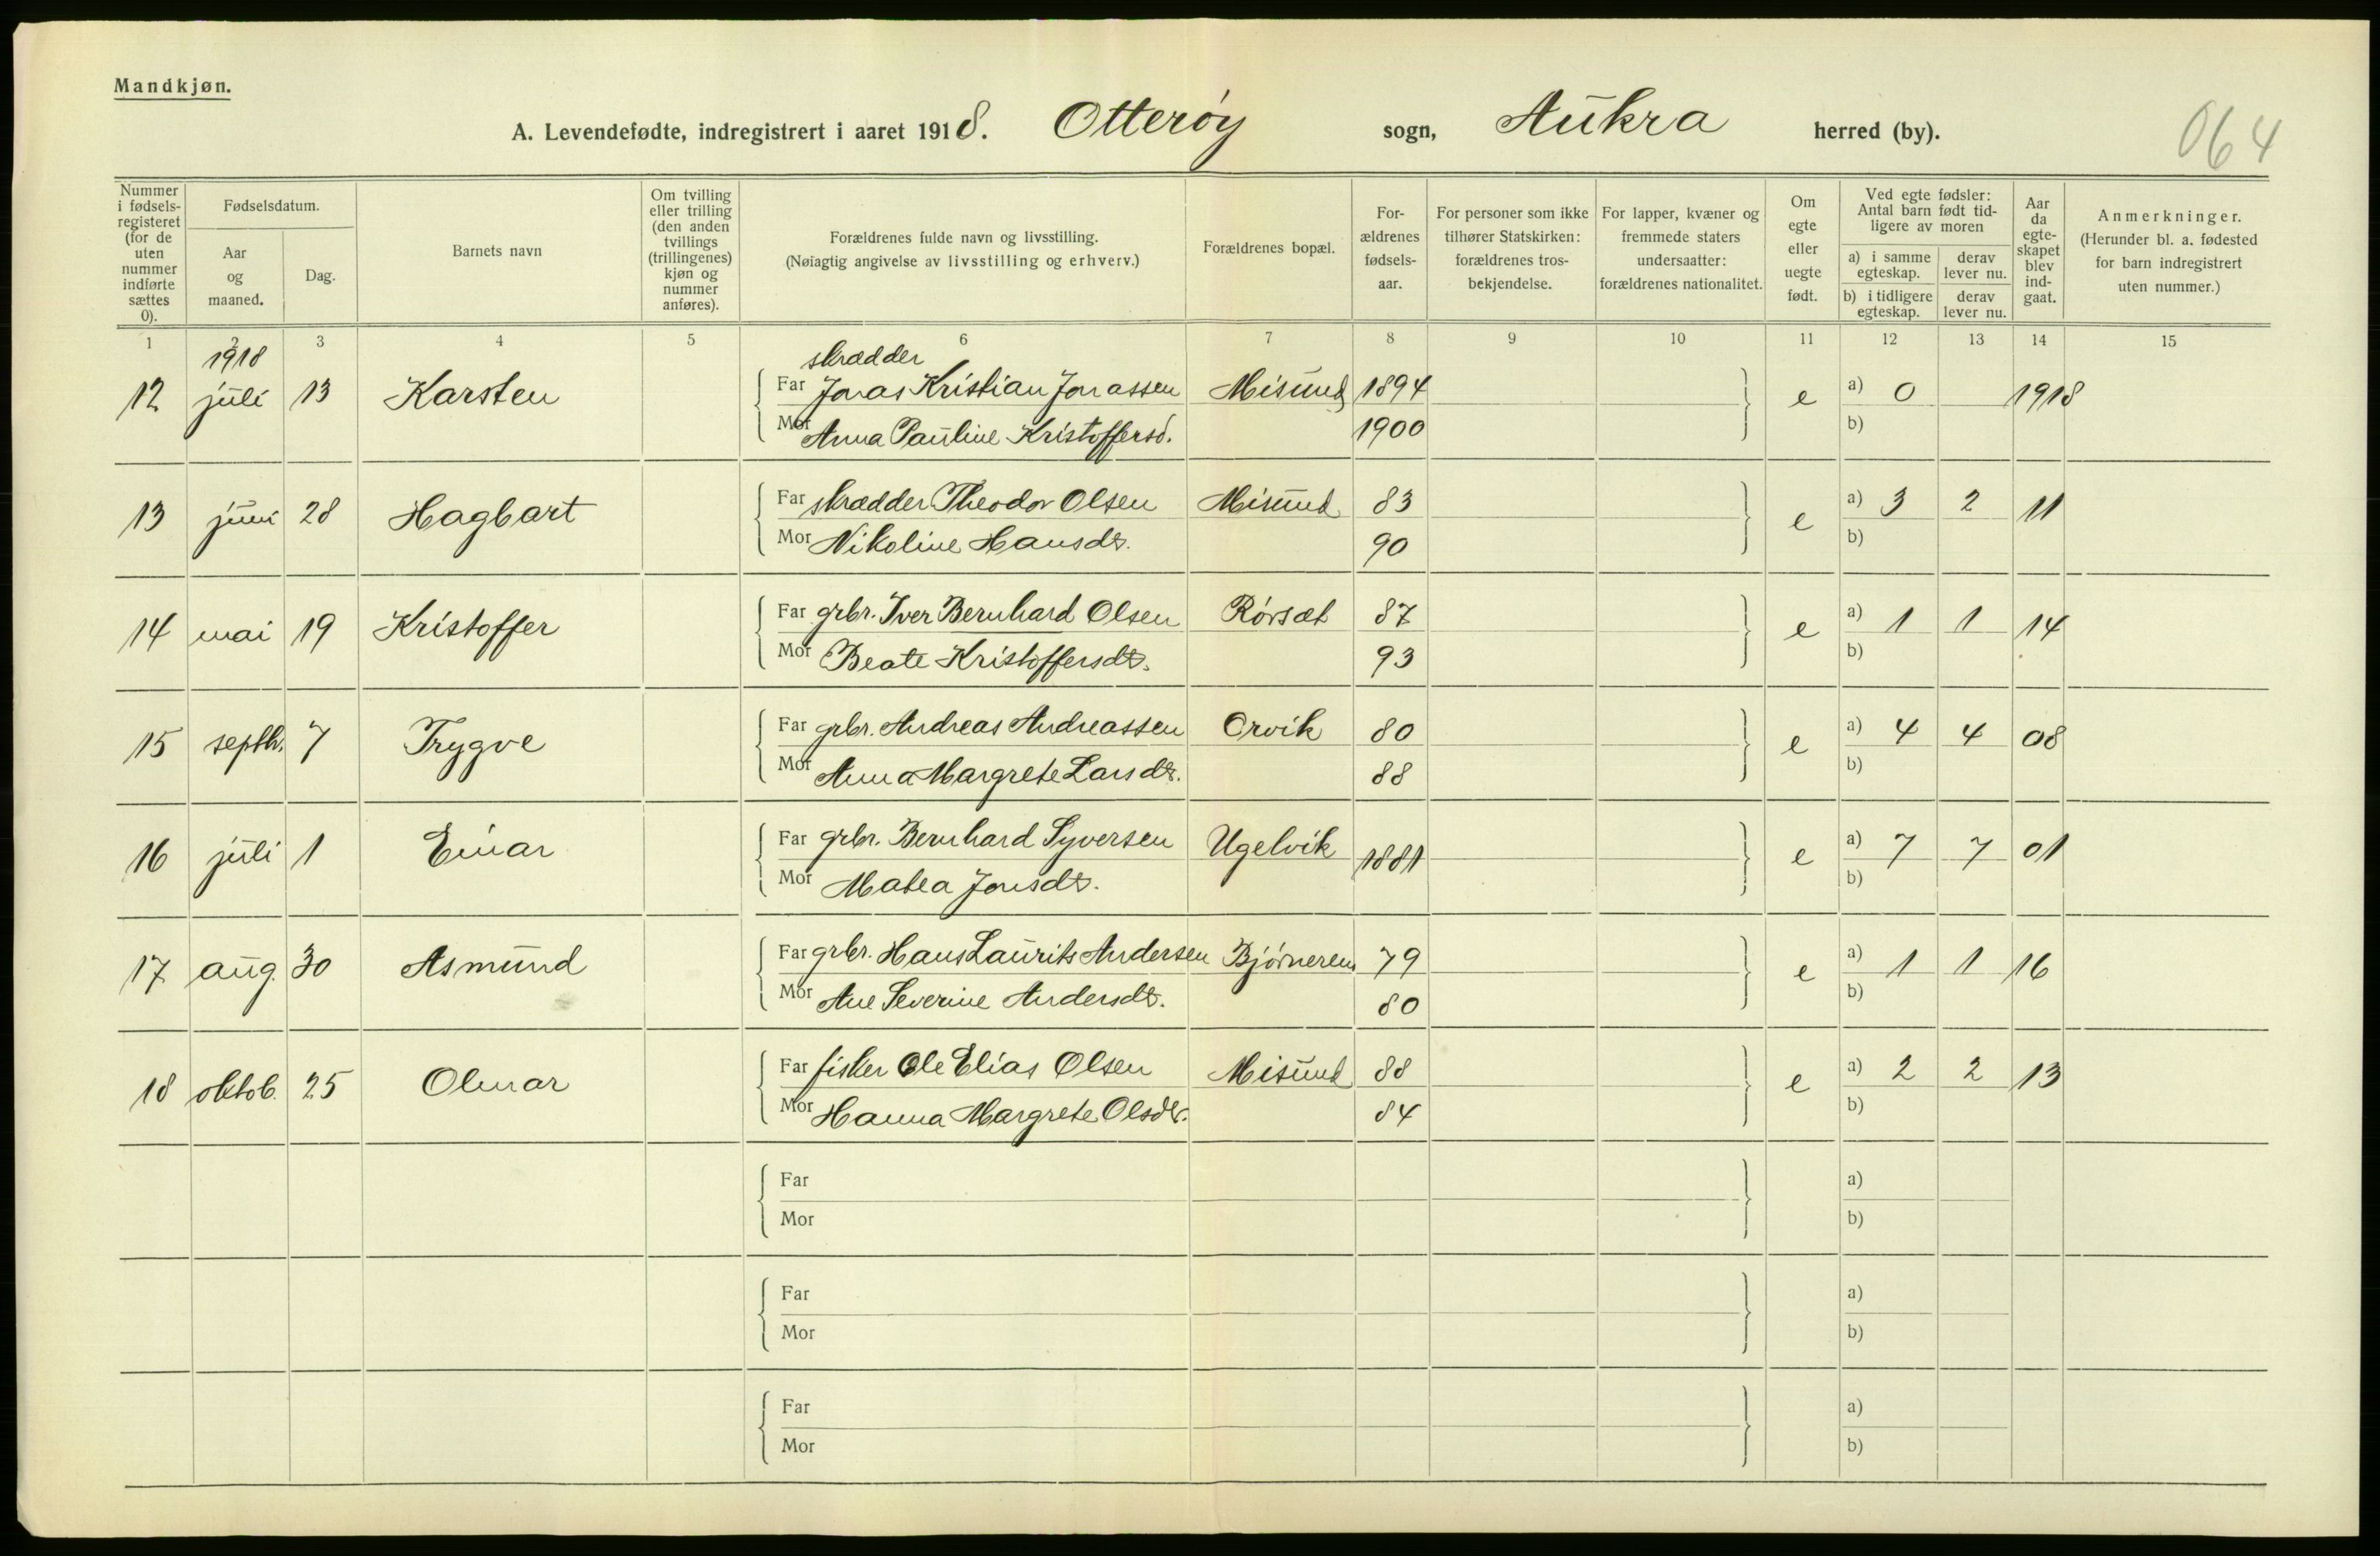 Mandkjøn.
A. Levendefødte, indregistrert i aaret 1918. Otterøy sogn, Aukra herred (by).
064
Nummer i fødselsregisteret (for de uten nummer indførte sættes 0).
Fødselsdatum.
Aar og maaned.
Dag.
Barnets navn
Om tvilling eller trilling (den anden tvillings (trillingenes) kjøn og nummer anføres).
Forældrenes fulde navn og livsstilling.
(Nøiagtig angivelse av livsstilling og erhverv.)
Forældrenes bopæl.
Forældrenes fødselsaar.
For personer som ikke tilhører Statskirken: forældrenes trosbekjendelse.
For lapper, kvæner og fremmede staters undersaatter: forældrenes nationalitet.
Om egte eller uegte født.
Ved egte fødsler: Antal barn født tidligere av moren
a) i samme egteskap. derav lever nu.
b) i tidligere egteskap. derav lever nu.
Aar da egteskapet blev indgaat.
Anmerkninger.
(Herunder bl. a. fødested for barn indregistrert uten nummer.)
1 2 3 4 5 6 7 8 9 10 11 12 13 14 15
1918 skrædder
12 juli 13 Karsten Far Jonas Kristian Jonassen Misund 1894 e a) 0 1918
Mor Anna Pauline Kristoffersd. 1900 b)
13 juni 28 Hagbart Far skrædder Theodor Olsen Misund 83 e a) 3 2 11
Mor Nikoline Hansdt. 90 b)
14 mai 19 Kristoffer Far grbr. Iver Bernhard Olsen Rørsæt 87 e a) 1 1 14
Mor Beate Kristoffersdt. 93 b)
15 septbr. 7 Trygve Far grbr. Andreas Andreassen Orvik 80 e a) 4 4 08
Mor Anna Margrete Larsdt. 88 b)
16 juli 1 Einar Far grbr. Bernhard Syversen Ugelvik 1881 e a) 7 7 01
Mor Matea Jonsdt. b)
17 aug. 30 Asmund Far grbr. Hans Laurits Andersen Bjørnerem 79 e a) 1 1 16
Mor Ane Severine Andersdt. 80 b)
18 oktob. 25 Olmar Far fisker Ole Elias Olsen Misund 88 e a) 2 2 13
Mor Hanna Margrete Olsdt. 84 b)
Far a)
Mor b)
Far a)
Mor b)
Far a)
Mor b)